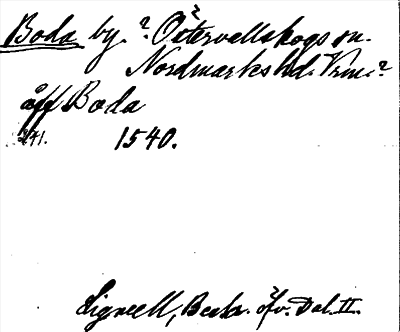 Boda by.? Östervallskogs sn.
Nordmarks hd. Vrml.?
åff Boda
271. 1540.
Lignell, Beskr. öfv. Dal. II.